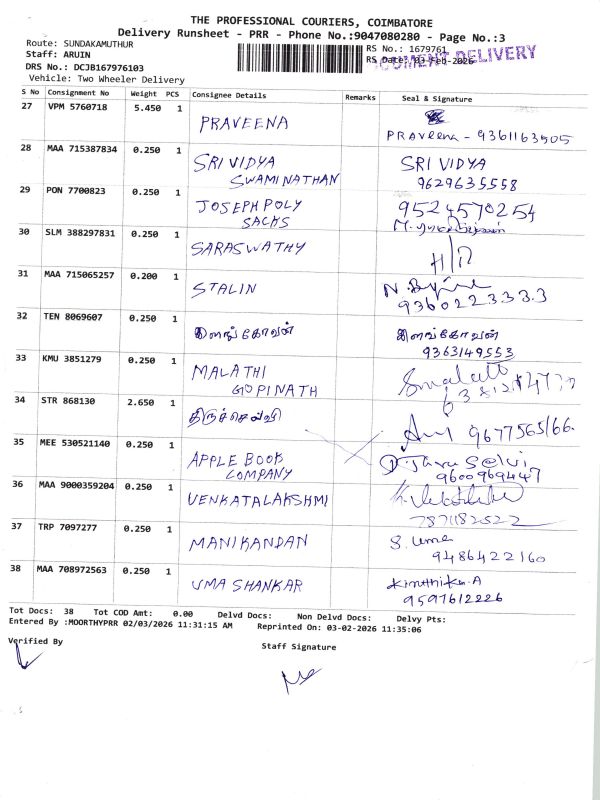 THE PROFESSIONAL COURIERS, COIMBATORE
Delivery Runsheet - PRR - Phone No.:9047080280 - Page No.:3
Route: SUNDAKAMUTHUR
Staff: ARUIN
DRS No.: DCJB167976103
Vehicle: Two Wheeler Delivery
RS No.: 1679761
RS Date: 03-Feb-2026
DOCUMENT DELIVERY
S No Consignment No Weight PCS Consignee Details Remarks Seal & Signature
27 VPM 5760718 5.450 1 PRAVEENA PRAVeena - 9361163505
28 MAA 715387834 0.250 1 SRI VIDYA SWAMINATHAN SRI VIDYA
9629635558
29 PON 7700823 0.250 1 JOSEPH POLY SACKS 9524570254
30 SLM 388297831 0.250 1 SARASWATHY H/R
31 MAA 715065257 0.200 1 STALIN
9360223333
32 TEN 8069607 0.250 1 இளங்கோவன் இளங்கோவன்
9363149553
33 KMU 3851279 0.250 1 MALATHI GOPINATH
34 STR 868130 2.650 1 திருச்செல்வி 9677565166
35 MEE 530521140 0.250 1 APPLE BOOK COMPANY
9600969447
36 MAA 9000359204 0.250 1 VENKATALAKSHMI
7871182522
37 TRP 7097277 0.250 1 MANIKANDAN S. Uma
9486422160
38 MAA 708972563 0.250 1 UMA SHANKAR Kiruthika.A
9597612226
Tot Docs: 38 Tot COD Amt: 0.00 Delvd Docs: Non Delvd Docs: Delvy Pts:
Entered By :MOORTHYPRR 02/03/2026 11:31:15 AM Reprinted On: 03-02-2026 11:35:06
Verified By
Staff Signature